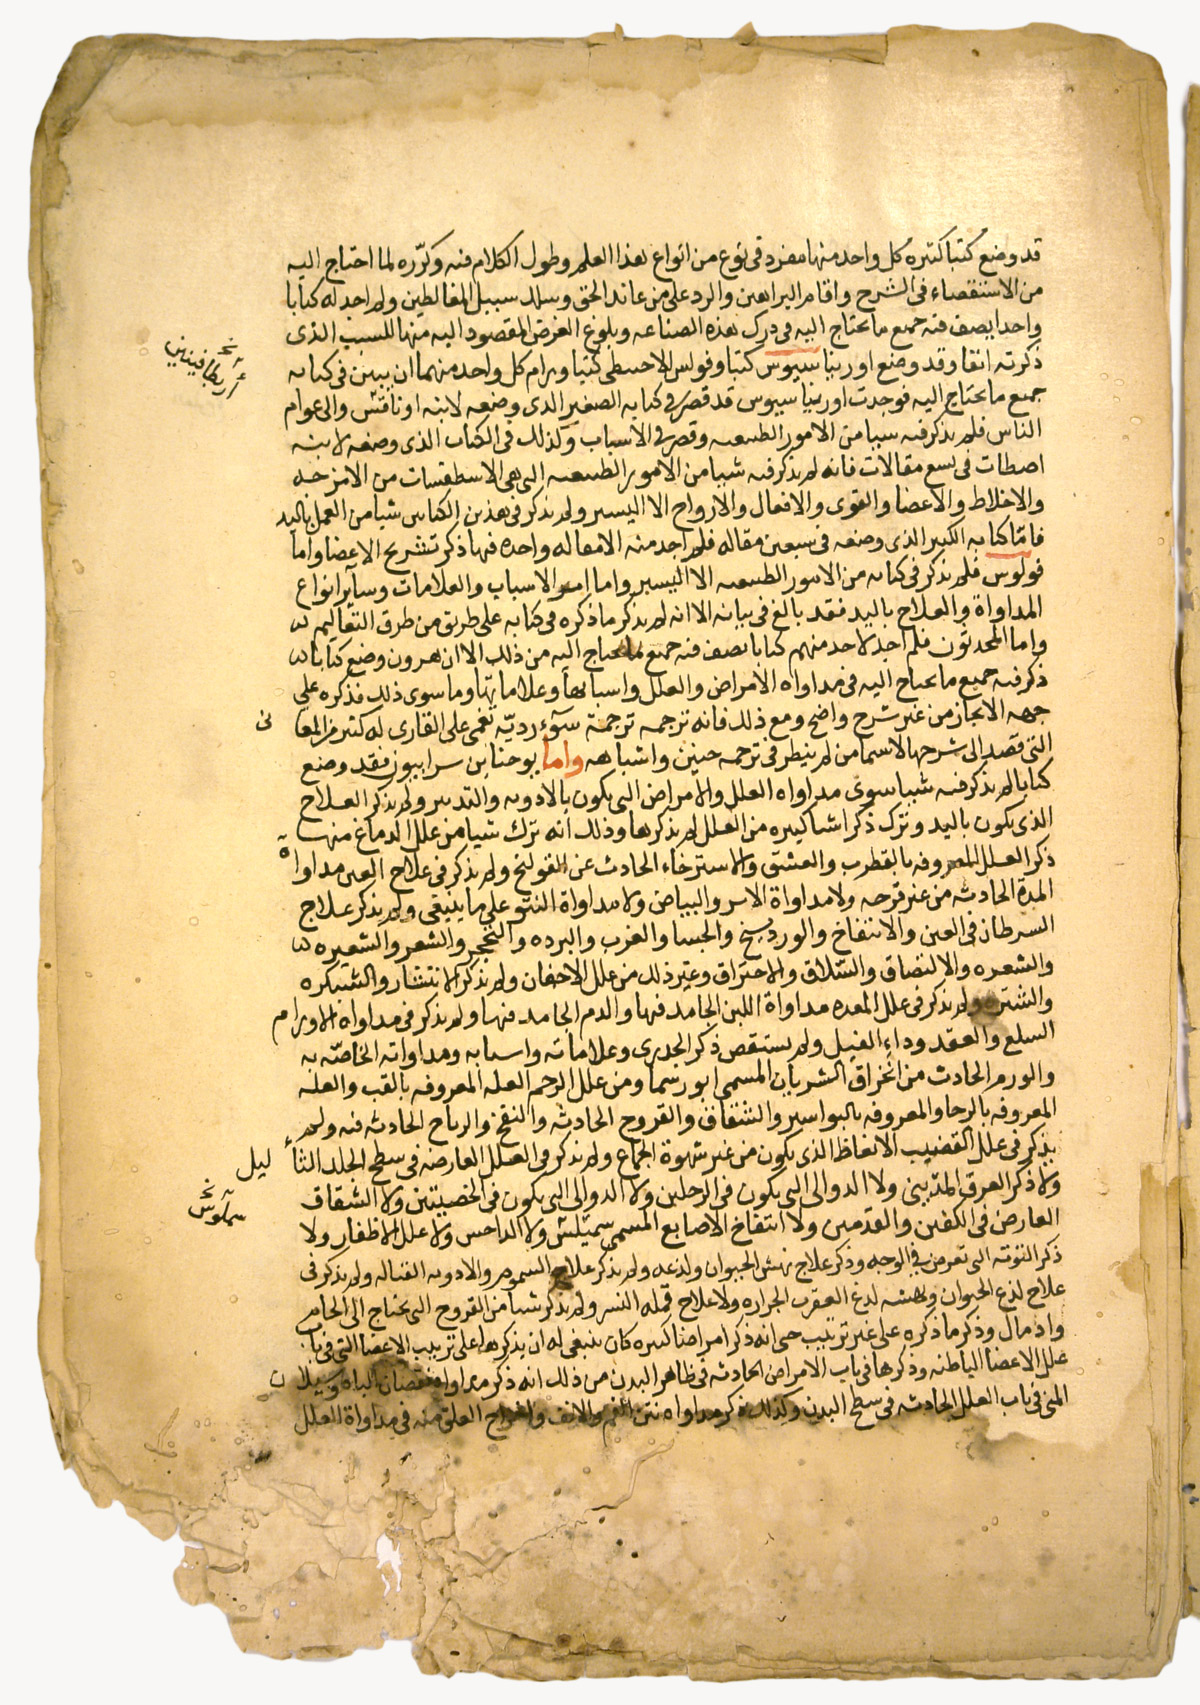 قد وضع كتبا كثيره كل واحد منها مفرد في نوع من انواع هذا العلم وطول الكلام فيه وكرّره لما احتاج اليه
من الاستقصاء في الشرح واقامه البراهين والرد على من عاند الحق وسلك سبيل المغالطين ولم اجد له كتابا
واحدا يصف فيه جميع ما يحتاج اليه في درك هذه الصناعه وبلوغ الغرض المقصود اليه منها للسبب الذى
ذكرته انفا وقد وضع اوريباسيوس كتبا وفولس الاجنيطى كتبا ورام كل واحد منهما ان يبين في كتابه
جميع ما يحتاج اليه فوجدت اوريباسيوس قد قصر في كتابه الصغير الذى وضعه لابنه اوناقش والى عوام
الناس فلم يذكر فيه شيا من الامور الطبيعيه وقصر في الاسباب وكذلك في الكتاب الذى وضعه لابنه
اصطات في تسع مقالات فانه لم يذكر فيه شيا من الامور الطبيعيه التى هى الاسطقسات من الامزجه
والاخلاط والاعضا والقوى والافعال والارواح الا اليسير ولم يذكر في هذين الكتابين شيا من العمل باليد
فامّا كتابه الكبير الذى وضعه في سبعين مقاله فلم اجد منه الا مقاله واحده فيها ذكر تشريح الاعضا واما
فولوس فلم يذكر في كتابه من الامور الطبيعيه الا اليسير واما امر الاسباب والعلامات وسآير انواع
المداواة والعلاج باليد فقد بالغ في بيانه الا انه لم يذكر ما ذكره في كتابه على طريق من طرق التعاليم
واما المحدثون فلم اجد لاحد منهم كتابا يصف فيه جميع ما يحتاج اليه من ذلك الا ان هرون وضع كتابا
ذكر فيه جميع ما يحتاج اليه في مداواه الامراض والعلل واسبابها وعلاماتها وما سوى ذلك فذكره على
جهه الايجاز من غير شرح واضح ومع ذلك فانه ترجمه ترجمة سوٓء رديّه تعمى على القارى له كثير من المعا نى
التى قصد الى شرحها لا سيما من لم ينظر في ترجمه حنين واشباهه واما يوحنا بن سرابيون فقد وضع
كتابا لم يذكر فيه شيا سوى مداواه العلل والامراض التى يكون بالادويه والتدبير ولم يذكر العلاج
الذى يكون باليد وترك ذكر اشيا كثيره من العلل لم يذكرها وذلك انه ترك شيا من علل الدماغ منها
ذكر العلل المعروفه بالقطرب والعشق والاسترخاء الحادث عن القولنج ولم يذكر في علاج العين مداواة
المدة الحادثه من غير قرحه ولا مداواة الاثر والبياض ولا مداواة النتو على ما ينبغى ولم يذكر علاج
السرطان في العين والانتفاخ والوردينج والجسا والغرب والبرده والتحجر والشعر والشعيره
والشعره والالتصاق والسّلاق والاحتراق وغير ذلك من علل الاجفان ولم يذكر الانتشار والشبكره
والشتره ولم يذكر في علل المعده مداواة اللبن الجامد فيها والدم الجامد فيها ولم يذكر في مداواة الاورام
السلع والعقد وداء الفيل ولم يستقص ذكر الجدرى وعلاماته واسبابه ومداواته الخاصّه به
والورم الحادث من انخراق الشريان المسمى ابورسما ومن علل الرحم العله المعروفه بالقب والعله
المعروفه بالرحا والمعروفه بالبواسير والشقاق والقروح الحادثه والنفخ والرياح الحادثه فيه ولم
يذكر في علل القضيب الانعاظ الذى يكون من غير شهوة الجماع ولم يذكر في العلل العارضه في سطح الجلد الثآ ليل
ولا ذكر العرق المدينى ولا الدوالى التى يكون في الرجلين ولا الدوالى التى يكون في الخصيتين ولا الشقاق
العارض في الكفين والقدمين ولا انتفاخ الاصابع المسمى سميلش ولا الداحس ولا علل الاظفار ولا
ذكر التوتته التى تعرض في الوجه وذكر علاج نهش الحيوان ولذعه ولم يذكر علاج السموم والادويه القتاله ولم يذكر في
علاج لذع الحيوان ونهشه لدغ العقرب الجراره ولا علاج قمله النسر ولم يذكر شيا من القروح التى يحتاج الى الحام
وادمال وذكر ما ذكره على غير ترتيب حتى انه ذكر امراضا كثيره كان ينبغى له ان يذكرها على ترتيب الاعضا التى في باب
علل الاعضا الباطنه وذكرها في باب الامراض الحادثه في ظاهر البدن من ذلك انه ذكر مداواه نقصان الباه وسيلان
المنى في باب العلل الحادثه في سطح البدن وكذلك ذكر مداواه نتن الفم والانف واخراج العلق منه في مداواة العلل